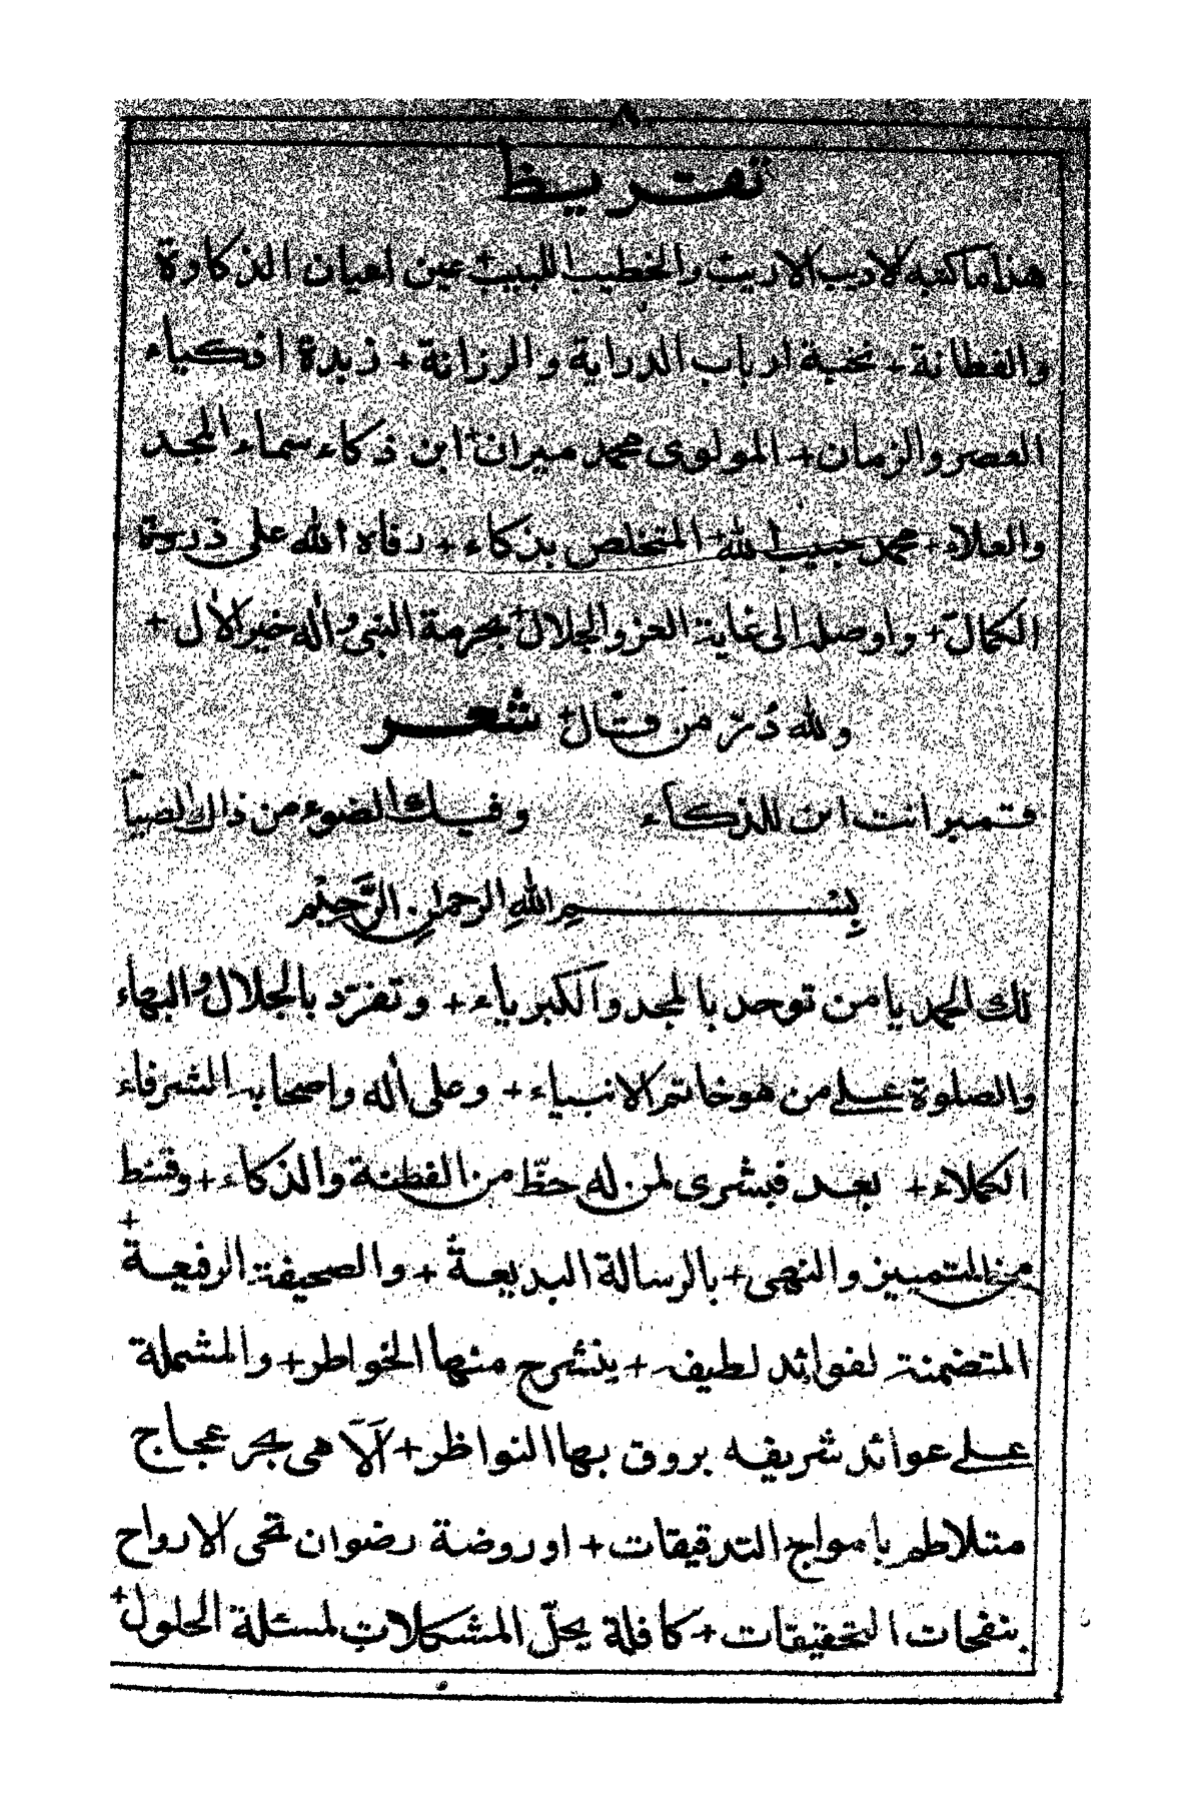 ٨
تقريظ
هذا ما كتبه الاديب الاريب والخطيب اللبيب عين اعيان الذكاوة
والفطانة + نخبة ارباب الدراية والرزانة + زبدة اذكياء
العصر والزمان + المولوى محمد ميران ابن ذكاء سماء المجد
والعلاء + محمد حبيب الله المتخلص بذكاء + رقاه الله على ذروة
الكمال + واوصله الى غاية العز والجلال + بحرمة النبى واله خير الأل +
ولله درّ من قال شعر
فتمبر انت ابن للذكاء وفيك الضوء من ذاك الضياً
بسم الله الرحمن الرَّحيم
لك الحمد يا من توحد بالمجد والكبرياء + وتفرّد بالجلال والبهاء
والصلوة على من هو خاتم الانبياء + وعلى أله واصحابه الشرفاء
الكملاء + بعد فبشرى لمن له حظّ من الفطنة والذكاء + وقسط
من التمييز والنهى + بالرسالة البديعة + والصحيفة الرفيعة +
المتضمنة لفوائد لطيفه + ينشرح منها الخواطر + والمشملة
على عوائد شريفه بروق بها النواظر + ألاَ هى بحر عجاج
متلاطم بامواج التدقيقات + او روضة رضوان تحى الارواح
بنفحات التحقيقات + كافلة بحلّ المشكلات لمسئلة الحلول +